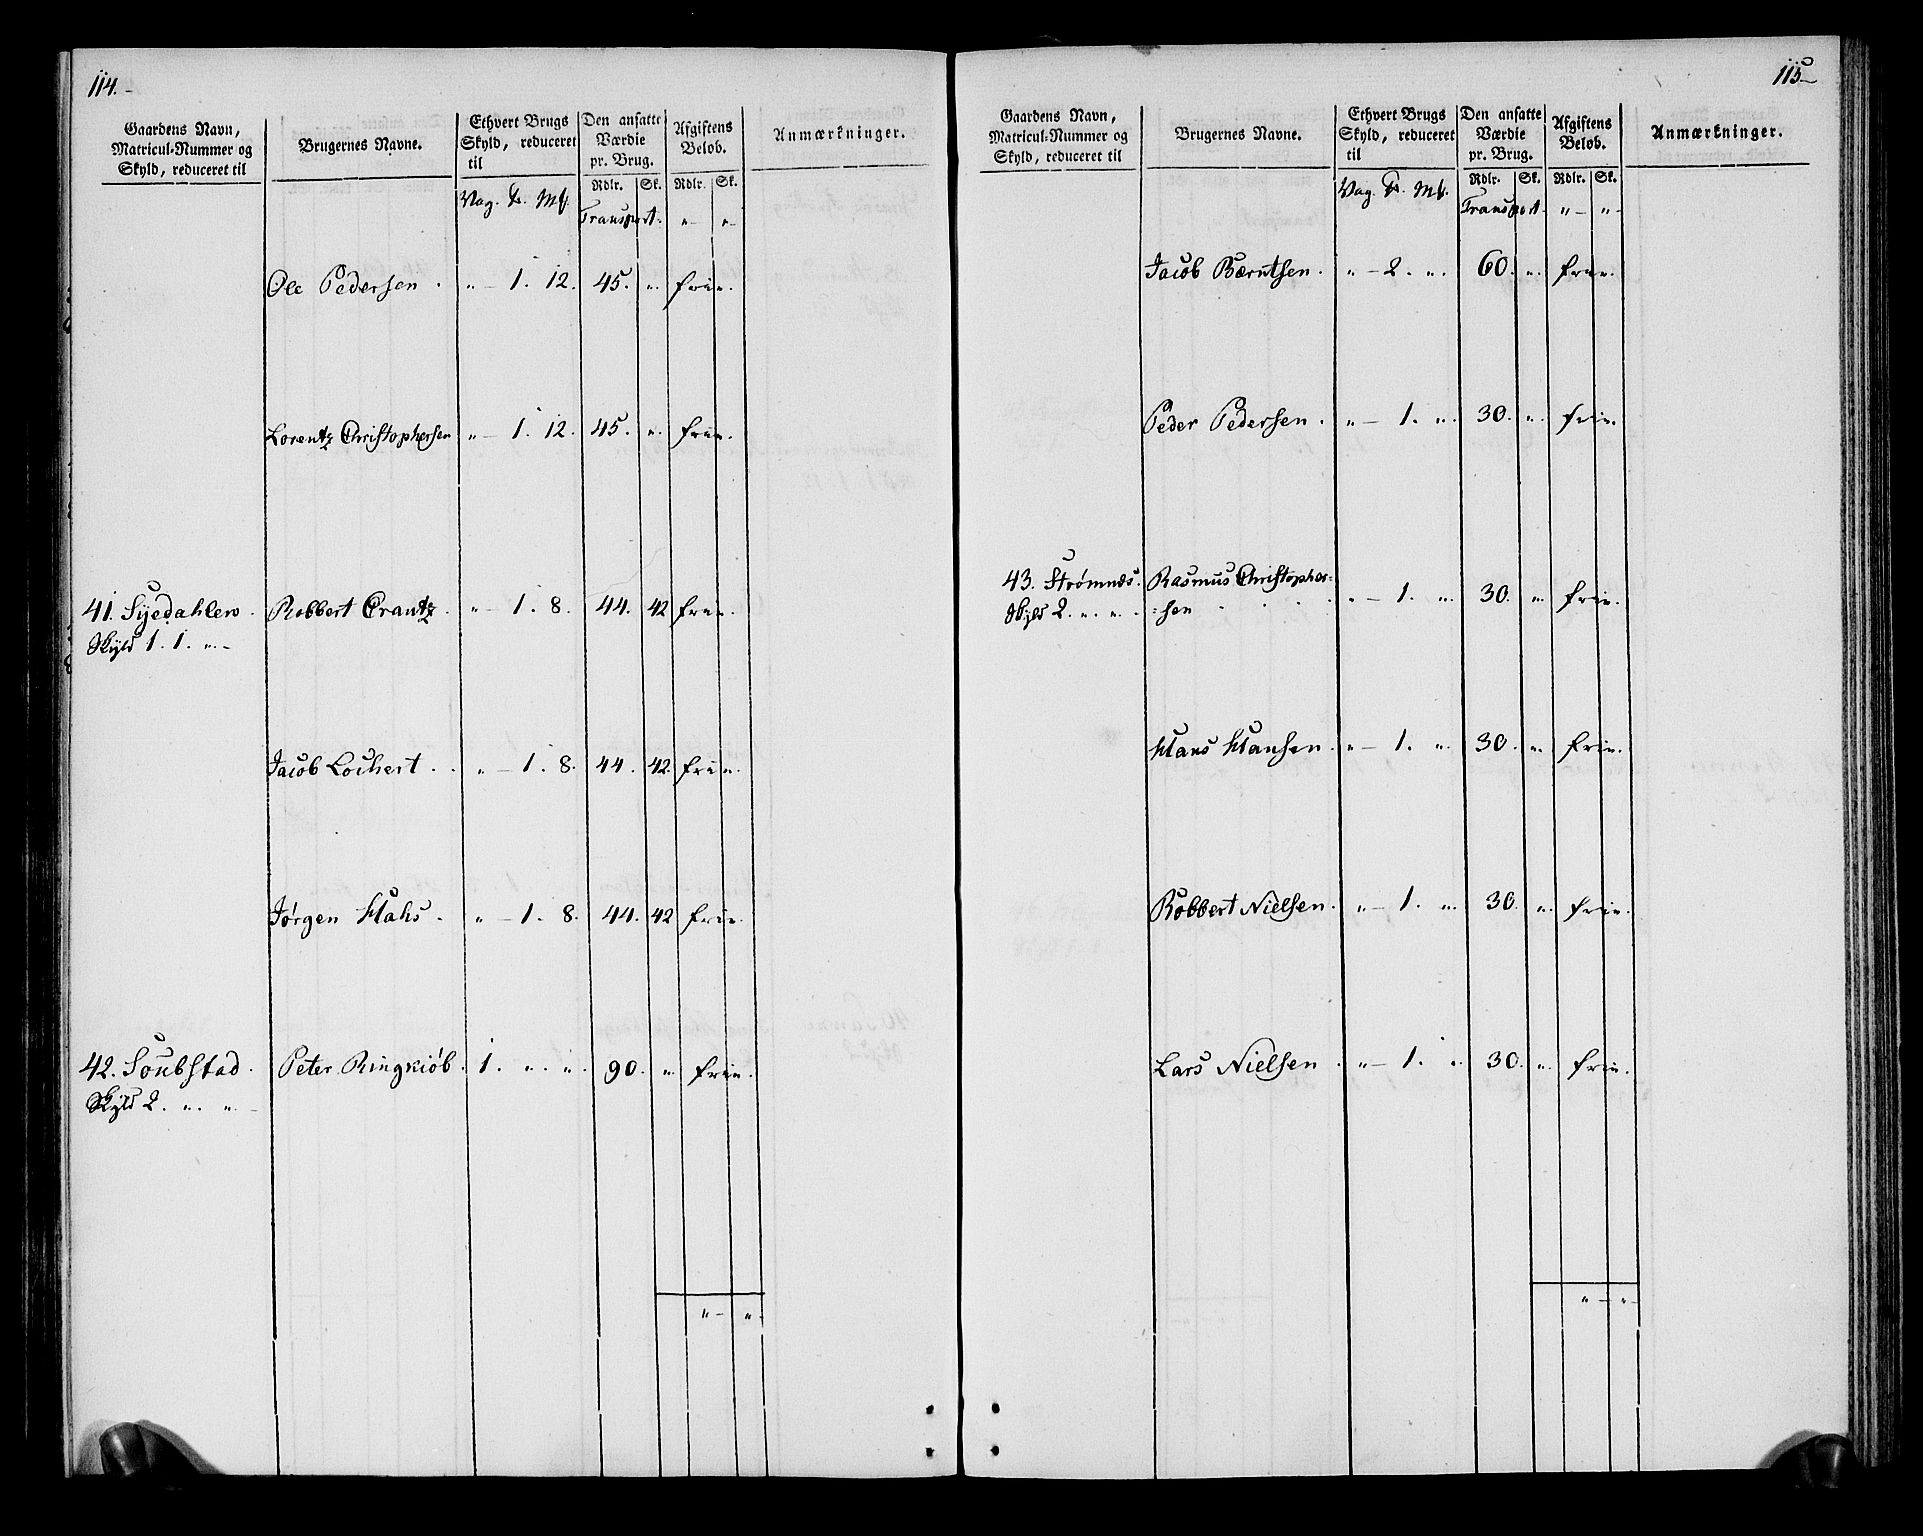 114.
Gaardens Navn, Matricul-Nummer og Skyld, reduceret til | Brugernes Navne. | Ethvert Brugs Skyld, reduceret til | Den ansatte Værdie pr. Brug. | Afgiftens Beløb. | Anmærkninger.
Vag. Mk. | Rdlr. Sk. | Rdlr. Sk.
Transport. " — " —
Ole Pedersen . " — 1. 12. 45. ". frie.
Lorentz Christophersen " — 1. 12. 45. ". frie.
41. Syedahlen . Robbert Crantz . " — 1. 8. 44. 42 frie.
Skyld 1. 1. ". —
Jacob Lochert . . " — 1. 8. 44. 42. frie.
Jørgen Hahs . " — 1. 8. 44. 42 frie.
42. Soubstad . Peter Ringkiøb . 1. ". ". 90. " frie.
Skyld 2. ". ". —
" — ".
115
Gaardens Navn, Matricul-Nummer og Skyld, reduceret til | Brugernes Navne. | Ethvert Brugs Skyld, reduceret til | Den ansatte Værdie pr. Brug. | Afgiftens Beløb. | Anmærkninger.
Vag. Mk. | Rdlr. Sk. | Rdlr. Sk.
Transport. " — " —
Jacob Bærntsen . " — 2. ". 60. ". frie.
Peder Pedersen . " — 1. ". 30. ". frie.
43. Strømnes. Rasmus Christopher-
Skyld 2. ". ". =sen . . . " — 1. ". 30. " frie.
Hans Hansen . " — 1. ". 30. " frie.
Robbert Nielsen . " — 1. ". 30. ". frie.
Lars Nielsen . " — 1. " 30. ". frie.
" — " —